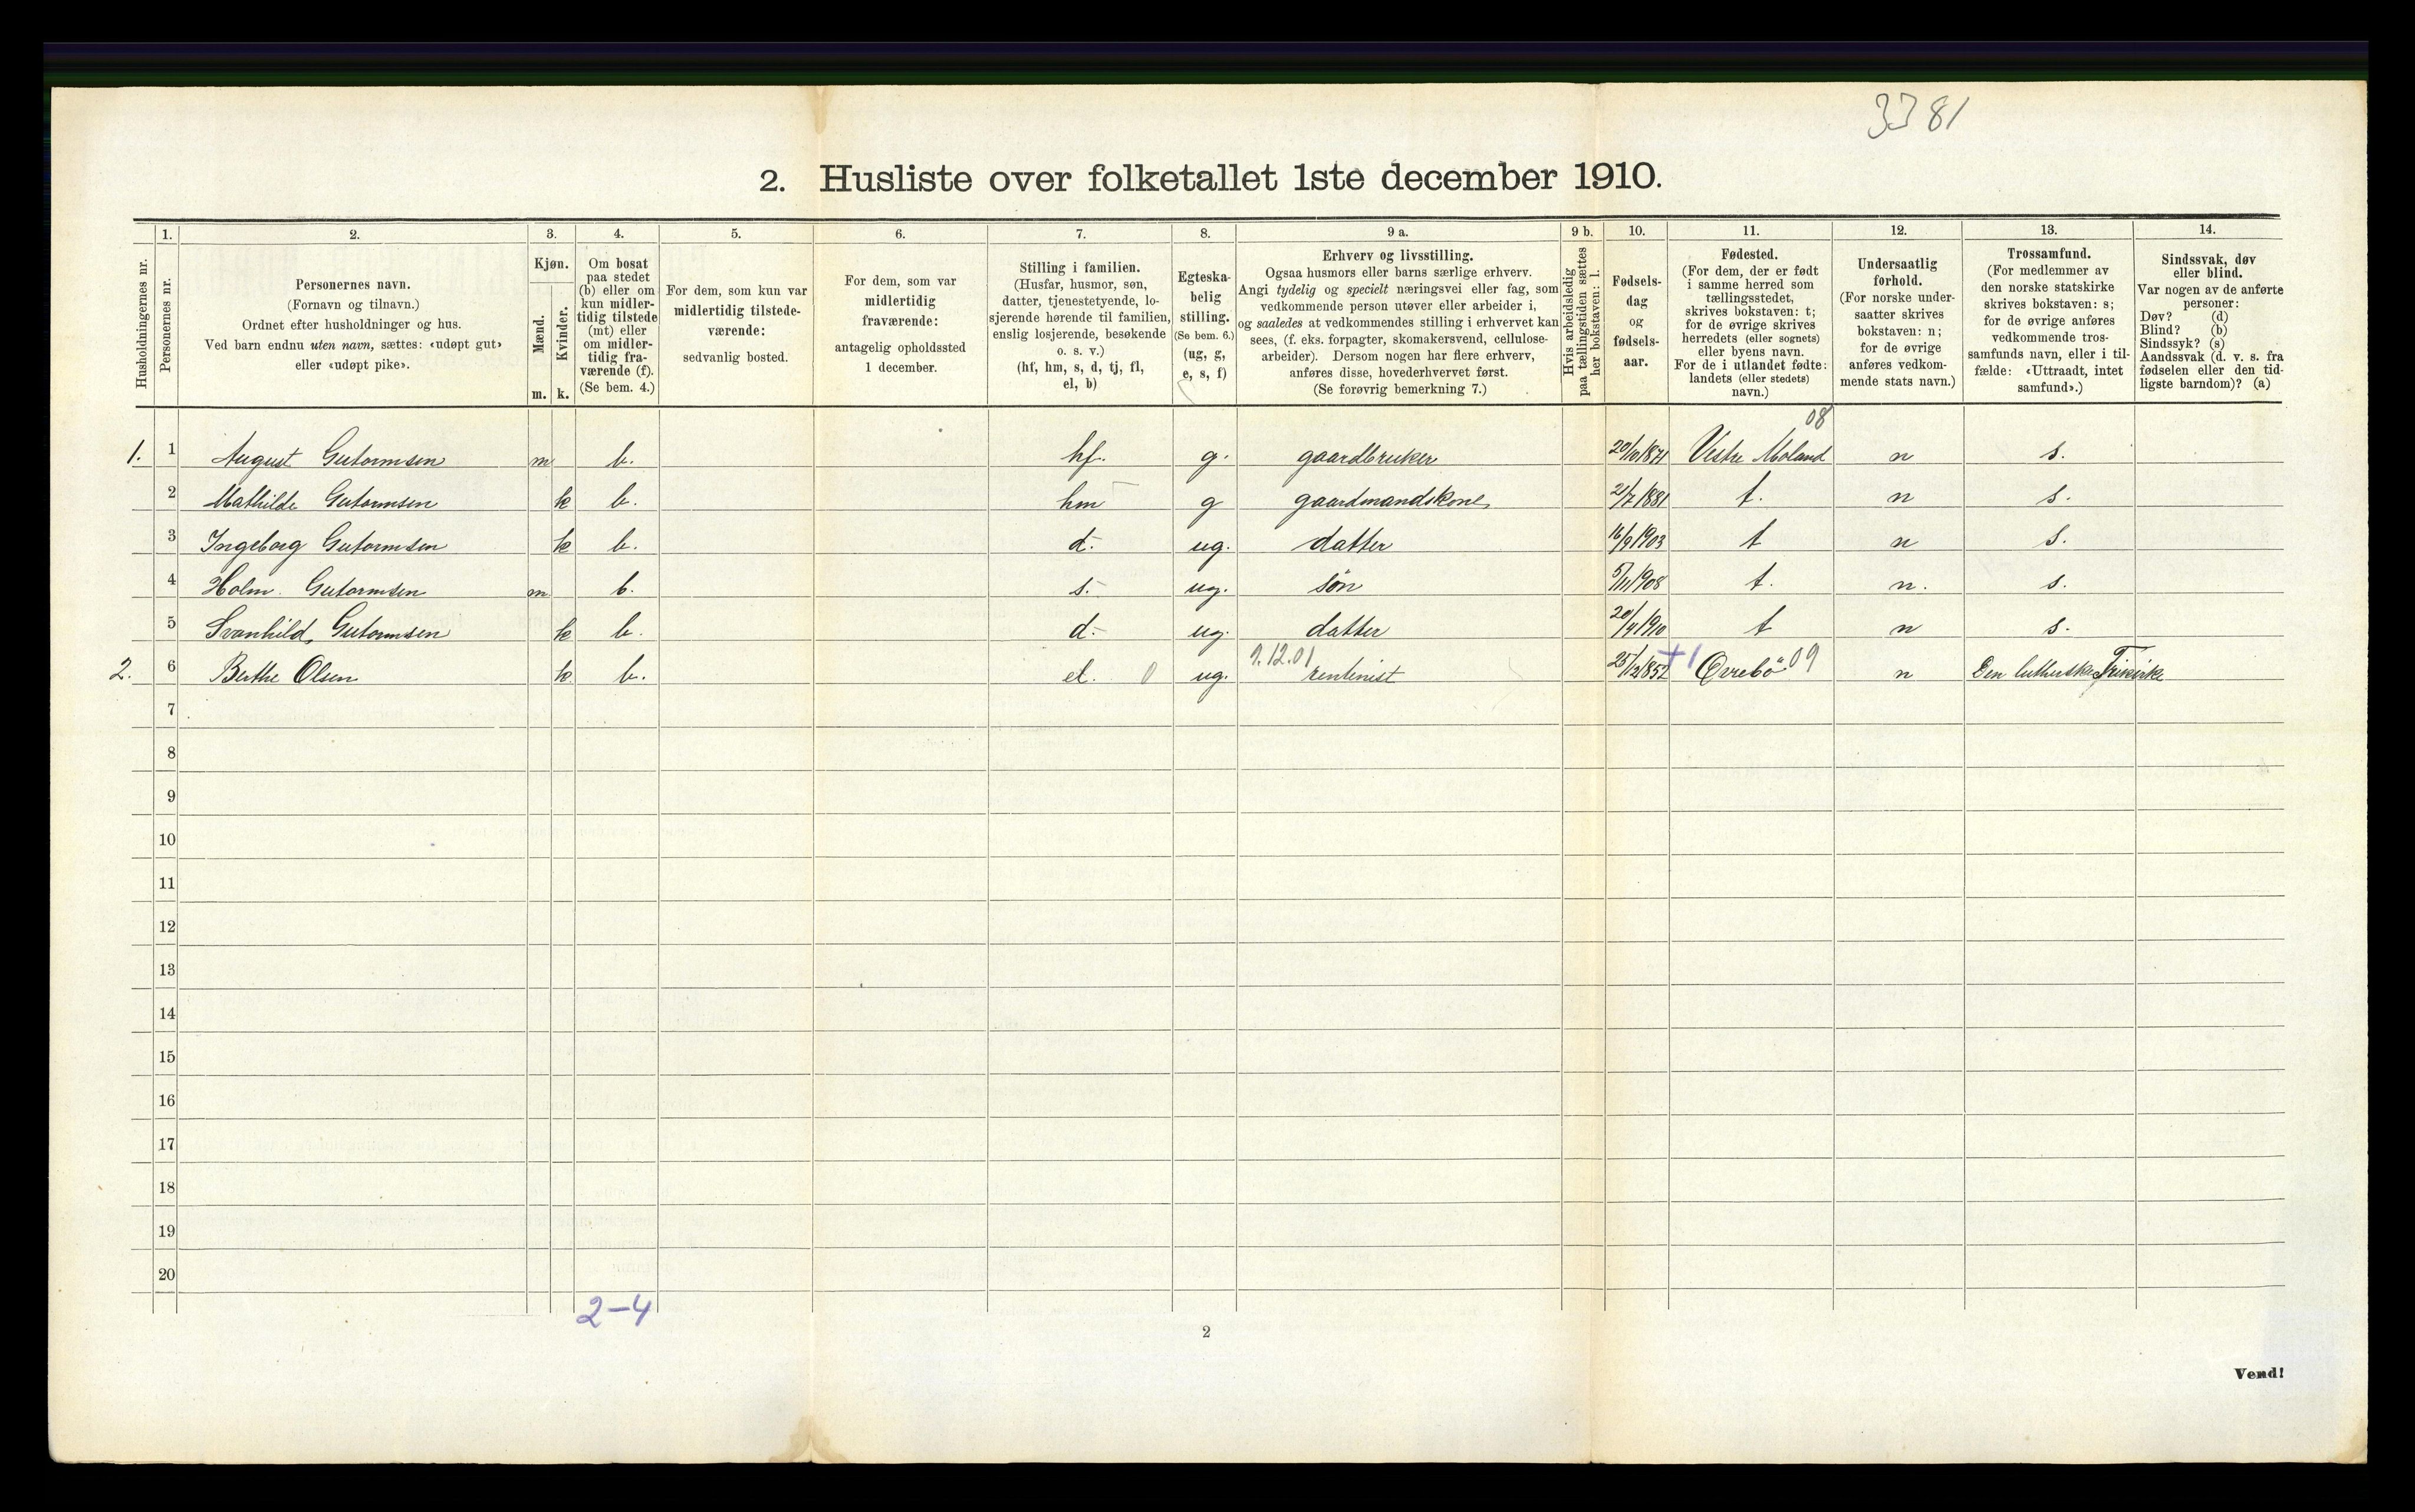 3381
2. Husliste over folketallet 1ste december 1910.
Husholdningernes nr.
1.
Personernes nr.
2.
Personernes navn.
(Fornavn og tilnavn.)
Ordnet efter husholdninger og hus.
Ved barn endnu uten navn, sættes: «udøpt gut»
eller «udøpt pike».
3.
Kjøn.
Mænd.
Kvinder.
m. k.
4.
Om bosat
paa stedet
(b) eller om
kun midler-
tidig tilstede
(mt) eller
om midler-
tidig fra-
værende (f).
(Se bem. 4.)
5.
For dem, som kun var
midlertidig tilstede-
værende:
sedvanlig bosted.
6.
For dem, som var
midlertidig
fraværende:
antagelig opholdssted
1 december.
7.
Stilling i familien.
(Husfar, husmor, søn,
datter, tjenestetyende, lo-
sjerende hørende til familien,
enslig losjerende, besøkende
o. s. v.)
(hf, hm, s, d, tj, fl,
el, b)
8.
Egteska-
belig
stilling.
(Se bem. 6.)
(ug, g,
e, s, f)
9 a.
Erhverv og livsstilling.
Ogsaa husmors eller barns særlige erhverv.
Angi tydelig og specielt næringsvei eller fag, som
vedkommende person utøver eller arbeider i,
og saaledes at vedkommendes stilling i erhvervet kan
sees, (f. eks. forpagter, skomakersvend, cellulose-
arbeider). Dersom nogen har flere erhverv,
anføres disse, hovederhvervet først.
(Se forøvrig bemerkning 7.)
9 b.
Hvis arbeidsledig
paa tællingstiden sættes
her bokstaven: l.
10.
Fødsels-
dag
og
fødsels-
aar.
11.
Fødested.
(For dem, der er født
i samme herred som
tællingsstedet,
skrives bokstaven: t;
for de øvrige skrives
herredets (eller sognets)
eller byens navn.
For de i utlandet fødte:
landets (eller stedets)
navn.)
12.
Undersaatlig
forhold.
(For norske under-
saatter skrives
bokstaven: n;
for de øvrige
anføres vedkom-
mende stats navn.)
13.
Trossamfund.
(For medlemmer av
den norske statskirke
skrives bokstaven: s;
for de øvrige anføres
vedkommende tros-
samfunds navn, eller i til-
fælde: «Uttraadt, intet
samfund».)
14.
Sindssvak, døv
eller blind.
Var nogen av de anførte
personer:
Døv? (d)
Blind? (b)
Sindssyk? (s)
Aandssvak (d. v. s. fra
fødselen eller den tid-
ligste barndom)? (a)
08
1. 1 August Gutormsen m b. hf. g. gaardbruker 20/10 1871 Vestre Moland n s.
2 Mathilde Gutormsen k b. hm g gaardmandskone 21/7 1881 t. n s.
3 Ingeborg Gutormsen k b. d. ug. datter 16/9 1903 t n s.
4 Holm Gutormsen m b. s. ug. søn 5/11 1908 t. n. s.
5 Svanhild Gutormsen k b. d. ug. datter 20/4 1910 t n s.
9.12.01
2. 6 Berthe Olsen k. b. el. 0 ug. rentenist 25/12 1852 +1 Øvrebö 09 n Den lutherske Frikirke
7
8
9
10
11
12
13
14
15
16
17
18
19
20
2-4
2
Vend!